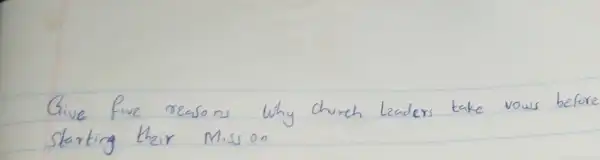 Give five reasons Why church leaders take vows before
starting their Mission